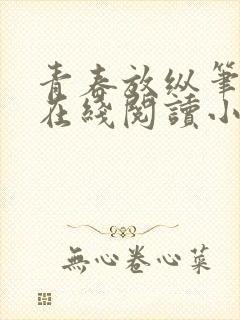 青春放纵筆
在綫閱讀小
無心卷心菜